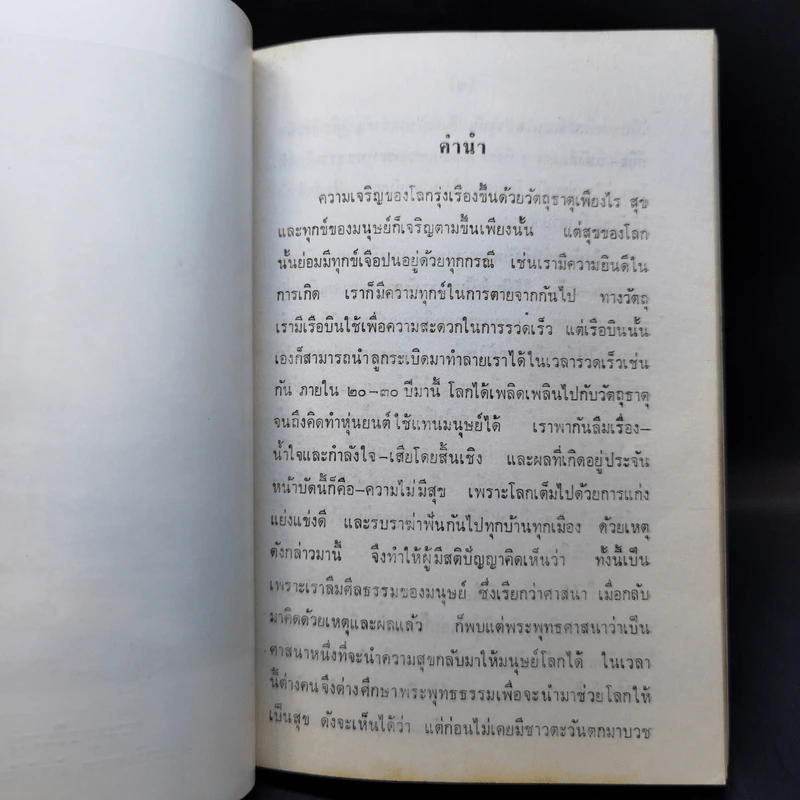 คำนำ
ความเจริญของโลกรุ่งเรืองขึ้นด้วยวัตถุธาตุเพียงไร สุข
และทุกข์ของมนุษย์ก็เจริญตามขึ้นเพียงนั้น แต่สุขของโลก
นั้นย่อมมีทุกข์เจือปนอยู่ด้วยทุกกรณี เช่นเรามีความยินดีใน
การเกิด เราก็มีความทุกข์ในการตายจากกันไป ทางวัตถุ
เรามีเรือบินใช้เพื่อความสะดวกในการรวดเร็ว แต่เรือบินนั้น
เองก็สามารถนำลูกระเบิดมาทำลายเราได้ในเวลารวดเร็วเช่น
กัน ภายใน ๒๐-๓๐ ปีมานี้ โลกได้เพลิดเพลินไปกับวัตถุธาตุ
จนถึงคิดทำหุ่นยนต์ ใช้แทนมนุษย์ได้ เราพากันลืมเรื่อง-
น้ำใจและกำลังใจ-เสียโดยสิ้นเชิง และผลที่เกิดอยู่ประจัน
หน้าบัดนี้ก็คือ-ความไม่มีสุข เพราะโลกเต็มไปด้วยการแก่ง
แย่งแข่งดี และรบราฆ่าฟันกันไปทุกบ้านทุกเมือง ด้วยเหตุ
ดังกล่าวมานี้ จึงทำให้ผู้มีสติปัญญาคิดเห็นว่า ทั้งนี้เป็น
เพราะเราลืมศีลธรรมของมนุษย์ ซึ่งเรียกว่าศาสนา เมื่อกลับ
มาคิดด้วยเหตุและผลแล้ว ก็พบแต่พระพุทธศาสนาว่าเป็น
ศาสนาหนึ่งที่จะนำความสุขกลับมาให้มนุษย์โลกได้ ในเวลา
นี้ต่างคนจึงต่างศึกษาพระพุทธธรรมเพื่อจะนำมาช่วยโลกให้
เป็นสุข ดังจะเห็นได้ว่า แต่ก่อนไม่เคยมีชาวตะวันตกมาบวช